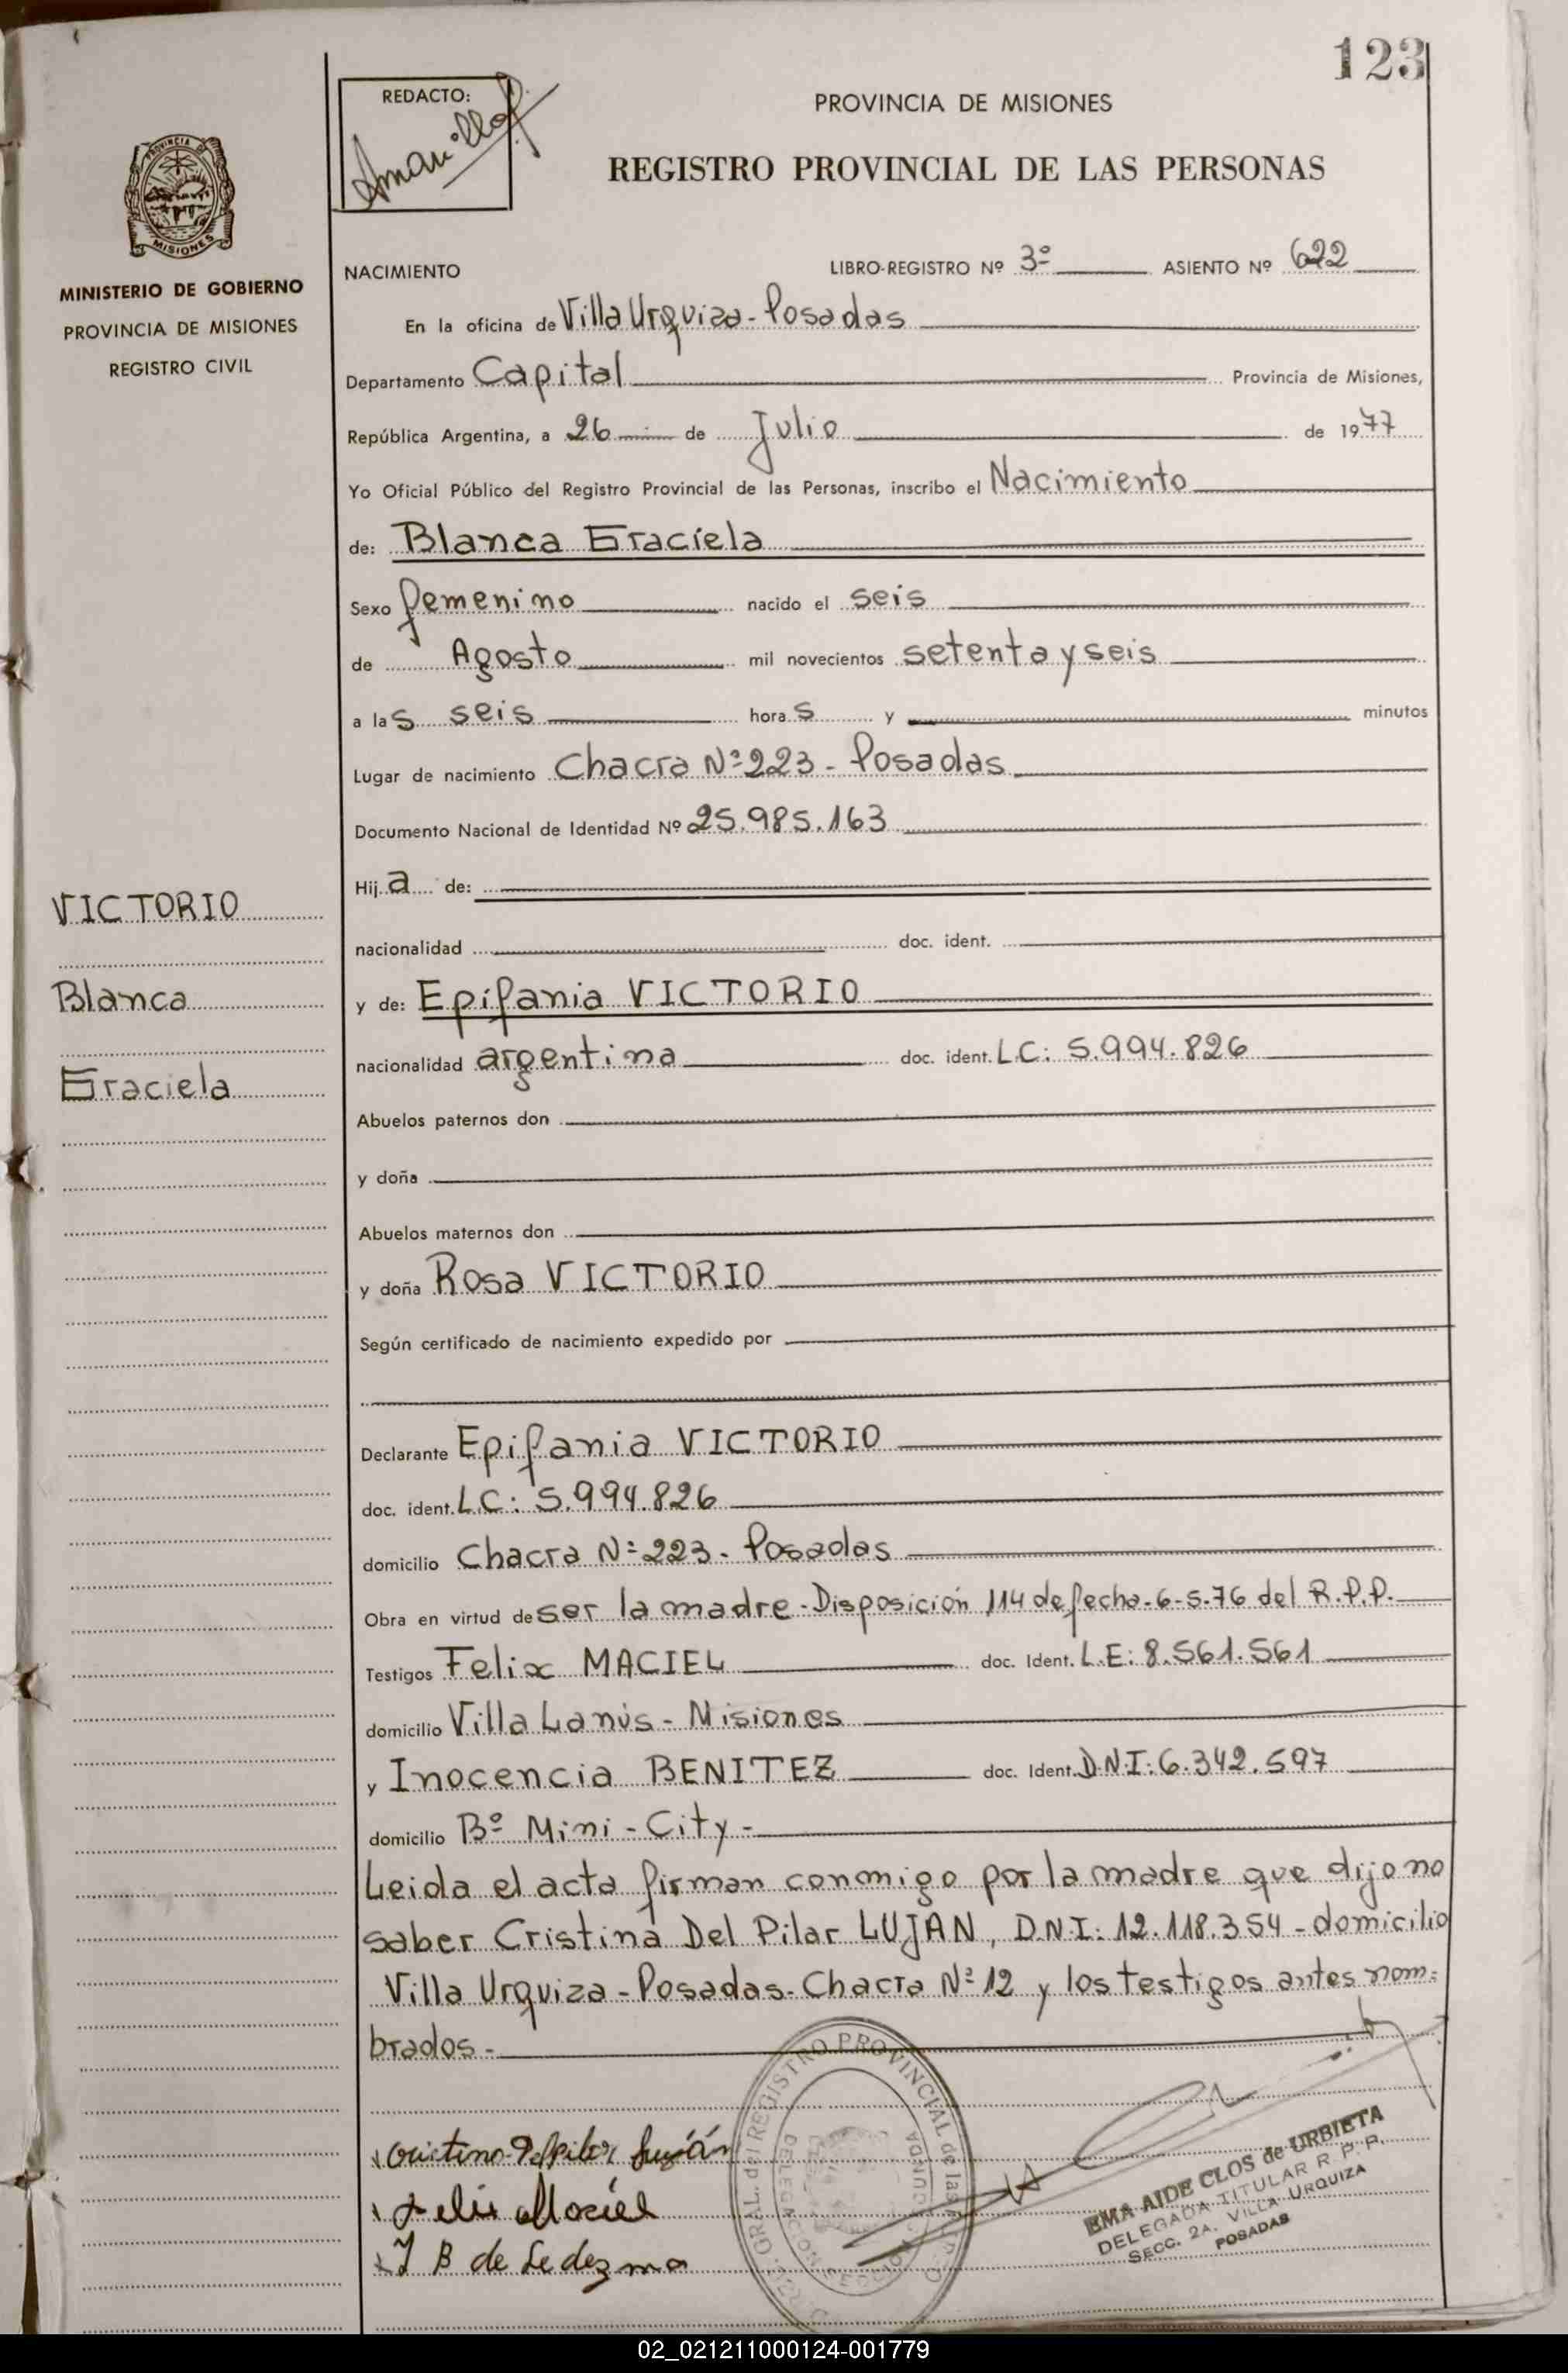 123
REDACTO:
PROVINCIA DE MISIONES
REGISTRO PROVINCIAL DE LAS PERSONAS
PROVINCIA DE
MISIONES
MINISTERIO DE GOBIERNO
PROVINCIA DE MISIONES
REGISTRO CIVIL
NACIMIENTO LIBRO-REGISTRO Nº 3º ASIENTO Nº 622
En la oficina de Villa Urquiza - Posadas
Departamento Capital Provincia de Misiones,
República Argentina, a 26 de Julio de 1977
Yo Oficial Público del Registro Provincial de las Personas, inscribo el Nacimiento
de: Blanca Graciela
Sexo femenino nacido el seis
de Agosto mil novecientos setenta y seis
a las seis horas y minutos
Lugar de nacimiento Chacra Nº 223 - Posadas
Documento Nacional de Identidad Nº 25.985.163
Hija de:
nacionalidad doc. ident.
y de: Epifania VICTORIO
nacionalidad argentina doc. ident. L.C: 5.994.826
Abuelos paternos don
y doña
Abuelos maternos don
y doña Rosa VICTORIO
Según certificado de nacimiento expedido por
Declarante Epifania VICTORIO
doc. ident. L.C: 5.994.826
domicilio Chacra Nº 223 - Posadas
Obra en virtud de ser la madre - Disposición 114 de fecha - 6-5-76 del R.P.P.
Testigos Felix MACIEL doc. Ident. L.E: 8.561.561
domicilio Villa Lanús - Misiones
y Inocencia BENITEZ doc. Ident. D.N.I: 6.342.597
domicilio Bº Mini - City -
Leida el acta firman conmigo por la madre que dijo no
saber Cristina Del Pilar LUJAN, D.N.I: 12.118.354 - domicilio
Villa Urquiza - Posadas - Chacra Nº 12 y los testigos antes nom=
brados -
VICTORIO
Blanca
Graciela
Cristina Del Pilar Luján
Felix Maciel
I B de Ledezma
GRAL. del REGISTRO PROVINCIAL de las
EMA AIDE CLOS de URBIETA
DELEGADA TITULAR R. P. P.
SECC. 2A. VILLA URQUIZA
POSADAS
02_021211000124-001779